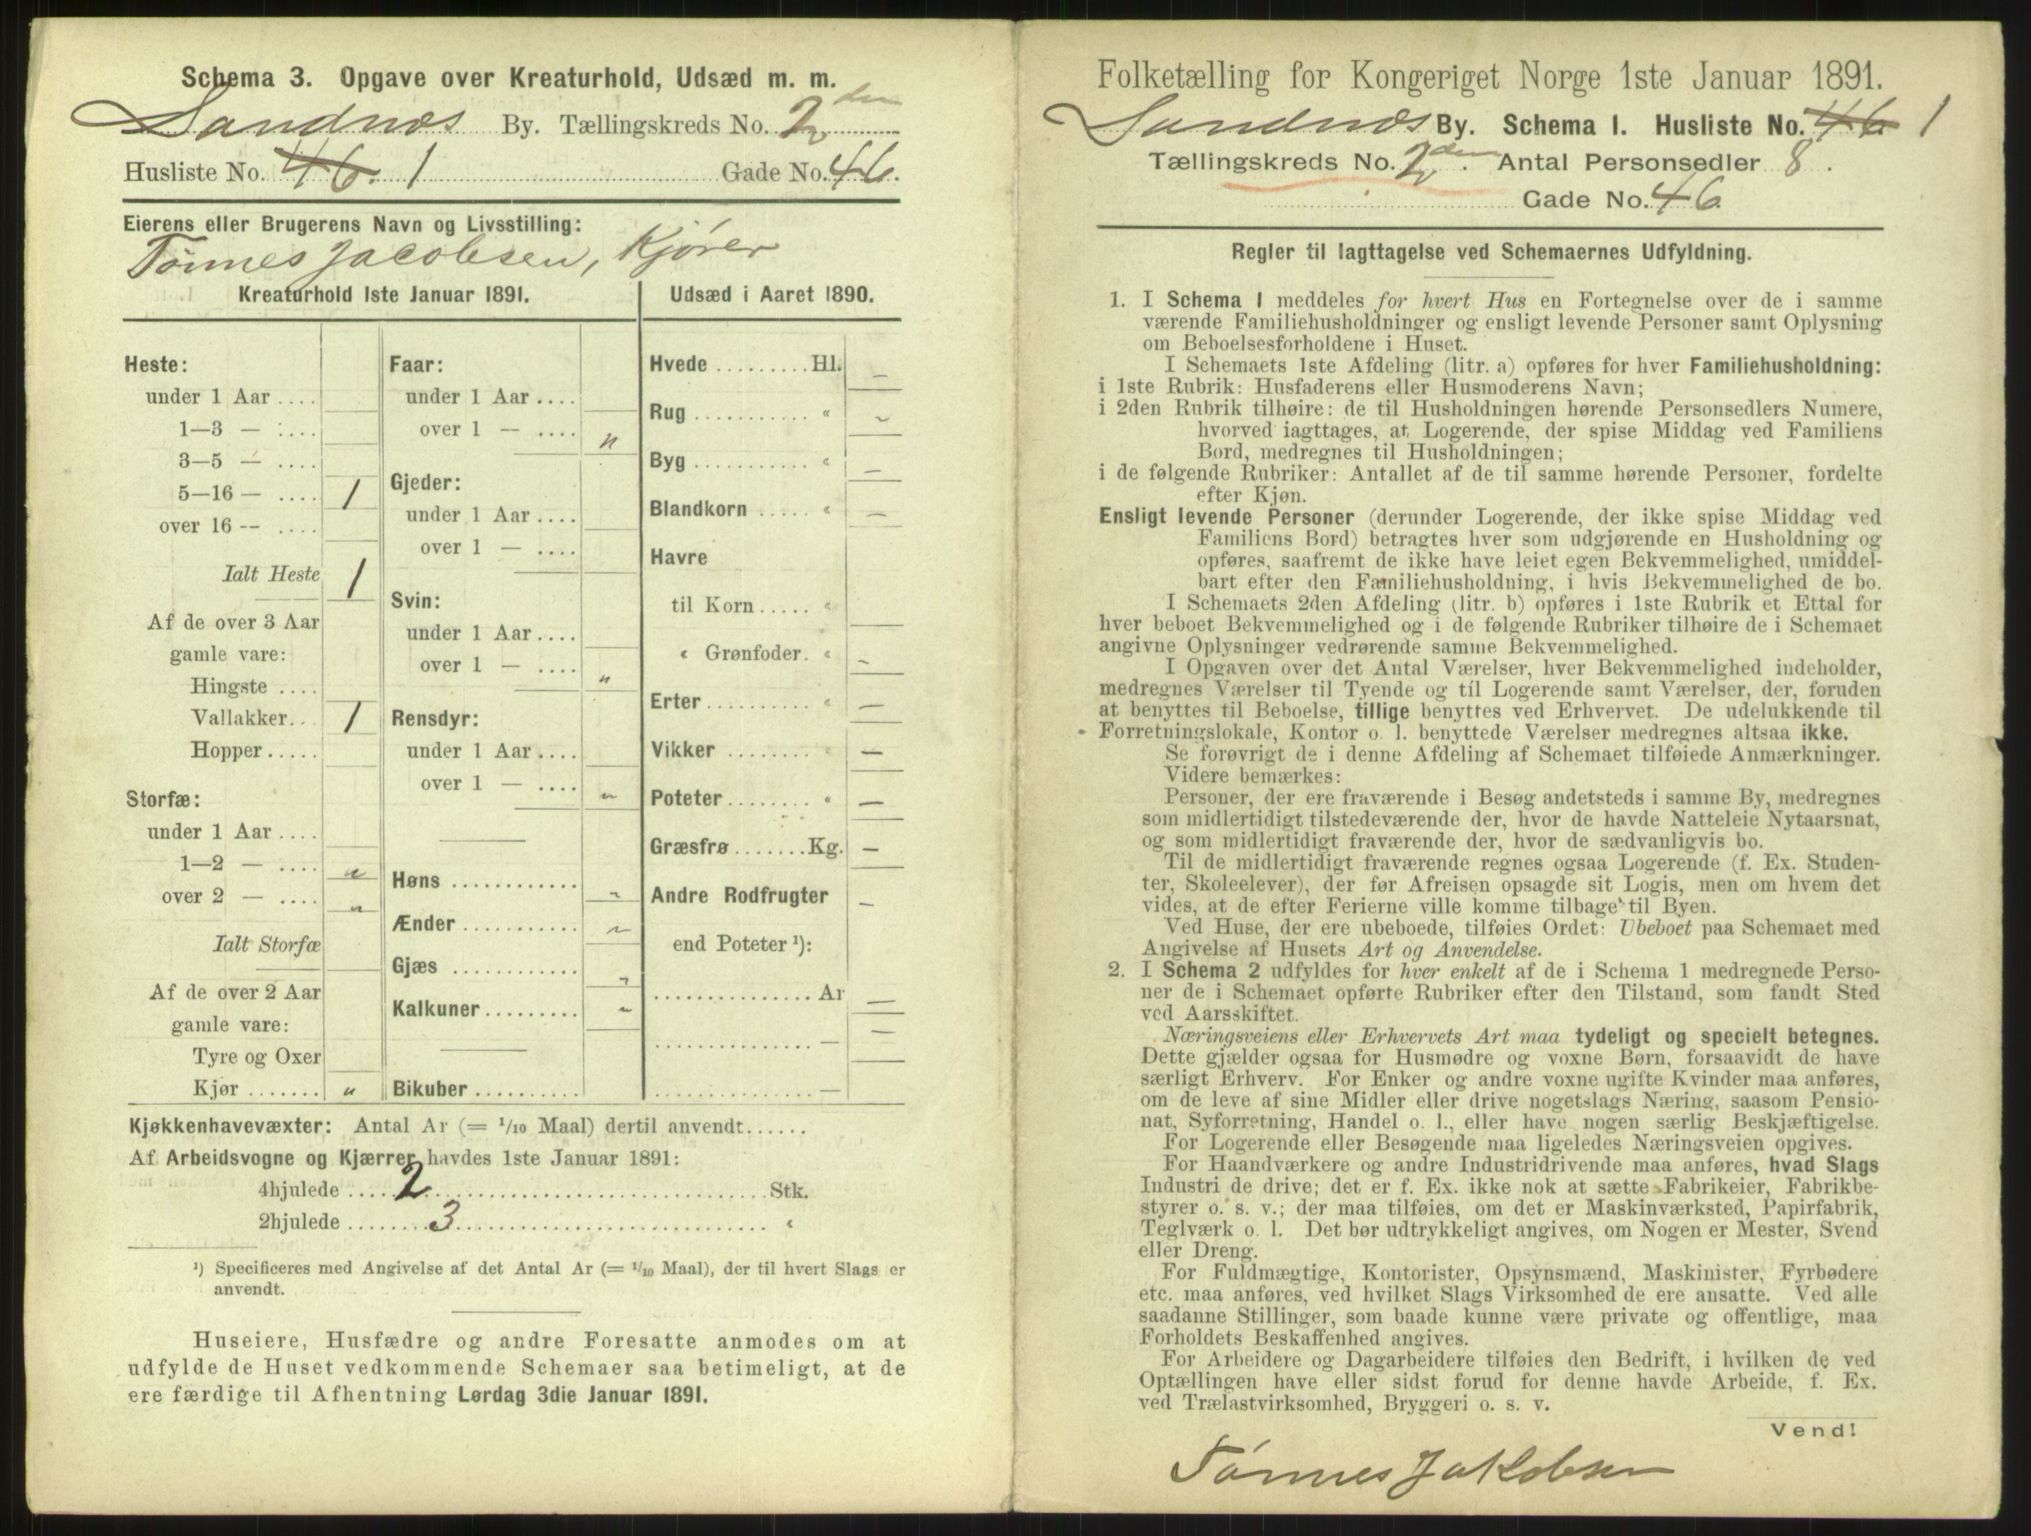 Schema 3. Opgave over Kreaturhold, Udsæd m. m.
Sandnæs By. Tællingskreds No. 2den
Husliste No. 46. 1 Gade No. 46.
Eierens eller Brugerens Navn og Livsstilling:
Tønnes Jacobsen, Kjører
Kreaturhold 1ste Januar 1891.
Heste:
under 1 Aar ....
1—3 — ....
3—5 — ....
5—16 — .... 1
over 16 -- ....
Ialt Heste 1
Af de over 3 Aar
gamle vare:
Hingste ....
Vallakker... 1
Hopper.....
Storfæ:
under 1 Aar ....
1—2 — .... "
over 2 — .... "
Ialt Storfæ
Af de over 2 Aar
gamle vare:
Tyre og Oxer
Kjør ....... "
Faar:
under 1 Aar ....
over 1 — .... "
Gjeder:
under 1 Aar ....
over 1 — ....
Svin:
under 1 Aar ....
over 1 — .... "
Rensdyr:
under 1 Aar ....
over 1 — .... "
Høns ............ "
Ænder ........... "
Gjæs ............ "
Kalkuner ......... "
Bikuber ..........
Udsæd i Aaret 1890.
Hvede .........Hl. —
Rug ........... « —
Byg ........... « —
Blandkorn ..... « —
Havre
til Korn ..... «
« Grønfoder. « —
Erter .......... « —
Vikker ........ « —
Poteter ........ « —
Græsfrø .......Kg. —
Andre Rodfrugter —
end Poteter ¹):
...............Ar —
............... — —
............... —
Kjøkkenhavevæxter: Antal Ar (= 1/10 Maal) dertil anvendt......
Af Arbeidsvogne og Kjærrer havdes 1ste Januar 1891:
4hjulede .... 2 ........ Stk.
2hjulede ........ 3 ........ «
¹) Specificeres med Angivelse af det Antal Ar (= 1/10 Maal), der til hvert Slags er
anvendt.
Huseiere, Husfædre og andre Foresatte anmodes om at
udfylde de Huset vedkommende Schemaer saa betimeligt, at de
ere færdige til Afhentning Lørdag 3die Januar 1891.
Folketælling for Kongeriget Norge 1ste Januar 1891.
Sandnæs By. Schema 1. Husliste No. 46 1
Tællingskreds No. 2den. Antal Personsedler 8.
Gade No. 46
Regler til Iagttagelse ved Schemaernes Udfyldning.
1. I Schema 1 meddeles for hvert Hus en Fortegnelse over de i samme
værende Familiehusholdninger og ensligt levende Personer samt Oplysning
om Beboelsesforholdene i Huset.
I Schemaets 1ste Afdeling (litr. a) opføres for hver Familiehusholdning:
i 1ste Rubrik: Husfaderens eller Husmoderens Navn;
i 2den Rubrik tilhøire: de til Husholdningen hørende Personsedlers Numere,
hvorved iagttages, at Logerende, der spise Middag ved Familiens
Bord, medregnes til Husholdningen;
i de følgende Rubriker: Antallet af de til samme hørende Personer, fordelte
efter Kjøn.
Ensligt levende Personer (derunder Logerende, der ikke spise Middag ved
Familiens Bord) betragtes hver som udgjørende en Husholdning og
opføres, saafremt de ikke have leiet egen Bekvemmelighed, umiddel-
bart efter den Familiehusholdning, i hvis Bekvemmelighed de bo.
I Schemaets 2den Afdeling (litr. b) opføres i 1ste Rubrik et Ettal for
hver beboet Bekvemmelighed og i de følgende Rubriker tilhøire de i Schemaet
angivne Oplysninger vedrørende samme Bekvemmelighed.
I Opgaven over det Antal Værelser, hver Bekvemmelighed indeholder,
medregnes Værelser til Tyende og til Logerende samt Værelser, der, foruden
at benyttes til Beboelse, tillige benyttes ved Erhvervet. De udelukkende til
Forretningslokale, Kontor o. l. benyttede Værelser medregnes altsaa ikke.
Se forøvrigt de i denne Afdeling af Schemaet tilføiede Anmærkninger.
Videre bemærkes:
Personer, der ere fraværende i Besøg andetsteds i samme By, medregnes
som midlertidigt tilstedeværende der, hvor de havde Natteleie Nytaarsnat,
og som midlertidigt fraværende der, hvor de sædvanligvis bo.
Til de midlertidigt fraværende regnes ogsaa Logerende (f. Ex. Studen-
ter, Skoleelever), der før Afreisen opsagde sit Logis, men om hvem det
vides, at de efter Ferierne ville komme tilbage til Byen.
Ved Huse, der ere ubeboede, tilføies Ordet: Ubeboet paa Schemaet med
Angivelse af Husets Art og Anvendelse.
2. I Schema 2 udfyldes for hver enkelt af de i Schema 1 medregnede Perso-
ner de i Schemaet opførte Rubriker efter den Tilstand, som fandt Sted
ved Aarsskiftet.
Næringsveiens eller Erhvervets Art maa tydeligt og specielt betegnes.
Dette gjælder ogsaa for Husmødre og voxne Børn, forsaavidt de have
særligt Erhverv. For Enker og andre voxne ugifte Kvinder maa anføres,
om de leve af sine Midler eller drive nogetslags Næring, saasom Pensio-
nat, Syforretning, Handel o. l., eller have nogen særlig Beskjæftigelse.
For Logerende eller Besøgende maa ligeledes Næringsveien opgives.
For Haandværkere og andre Industridrivende maa anføres, hvad Slags
Industri de drive; det er f. Ex. ikke nok at sætte Fabrikeier, Fabrikbe-
styrer o. s. v.; der maa tilføies, om det er Maskinværksted, Papirfabrik,
Teglværk o. l. Det bør udtrykkeligt angives, om Nogen er Mester, Svend
eller Dreng.
For Fuldmægtige, Kontorister, Opsynsmænd, Maskinister, Fyrbødere
etc. maa anføres, ved hvilket Slags Virksomhed de ere ansatte. Ved alle
saadanne Stillinger, som baade kunne være private og offentlige, maa
Forholdets Beskaffenhed angives.
For Arbeidere og Dagarbeidere tilføies den Bedrift, i hvilken de ved
Optællingen have eller sidst forud for denne havde Arbeide, f. Ex.
ved Trælastvirksomhed, Bryggeri o. s. v.
Vend!
Tønnes Jakobsen